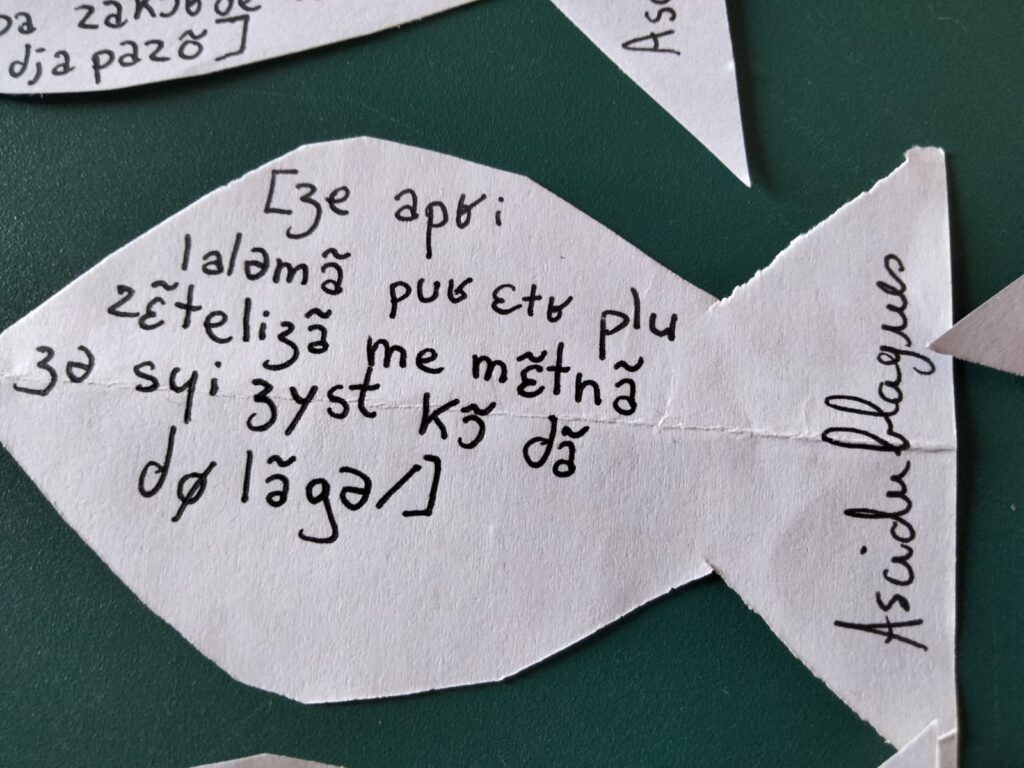 dja pazɔ̃]
As
[ʒe apʁi
lalǝmã puʁ ɛtʁ plu
zɛ̃teliʒã me mɛ̃tnã
ʒǝ sɥi ʒyst kɔ̃ dã
dø lãgǝ/]
Ascidublagues